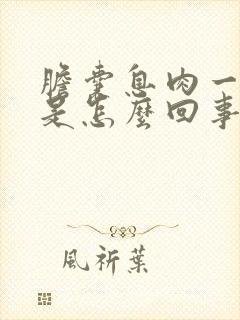 膽囊息肉一
是怎麼回事
風祈葉